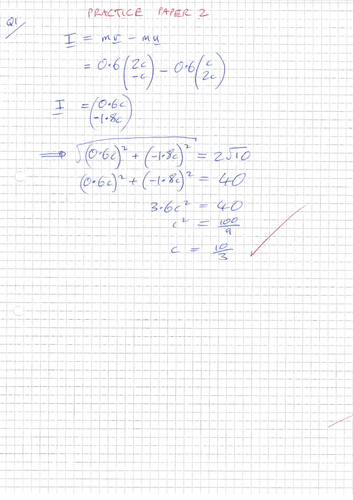 PRACTICE PAPER 2
Q1
I = mv - mu
= 0.6(2c -c) - 0.6(c 2c)
I = (0.6c -1.8c)
⇒ √((0.6c)² + (-1.8c)²) = 2√10
(0.6c)² + (-1.8c)² = 40
3.6c² = 40
c² = 100/9
c = 10/3 ✓